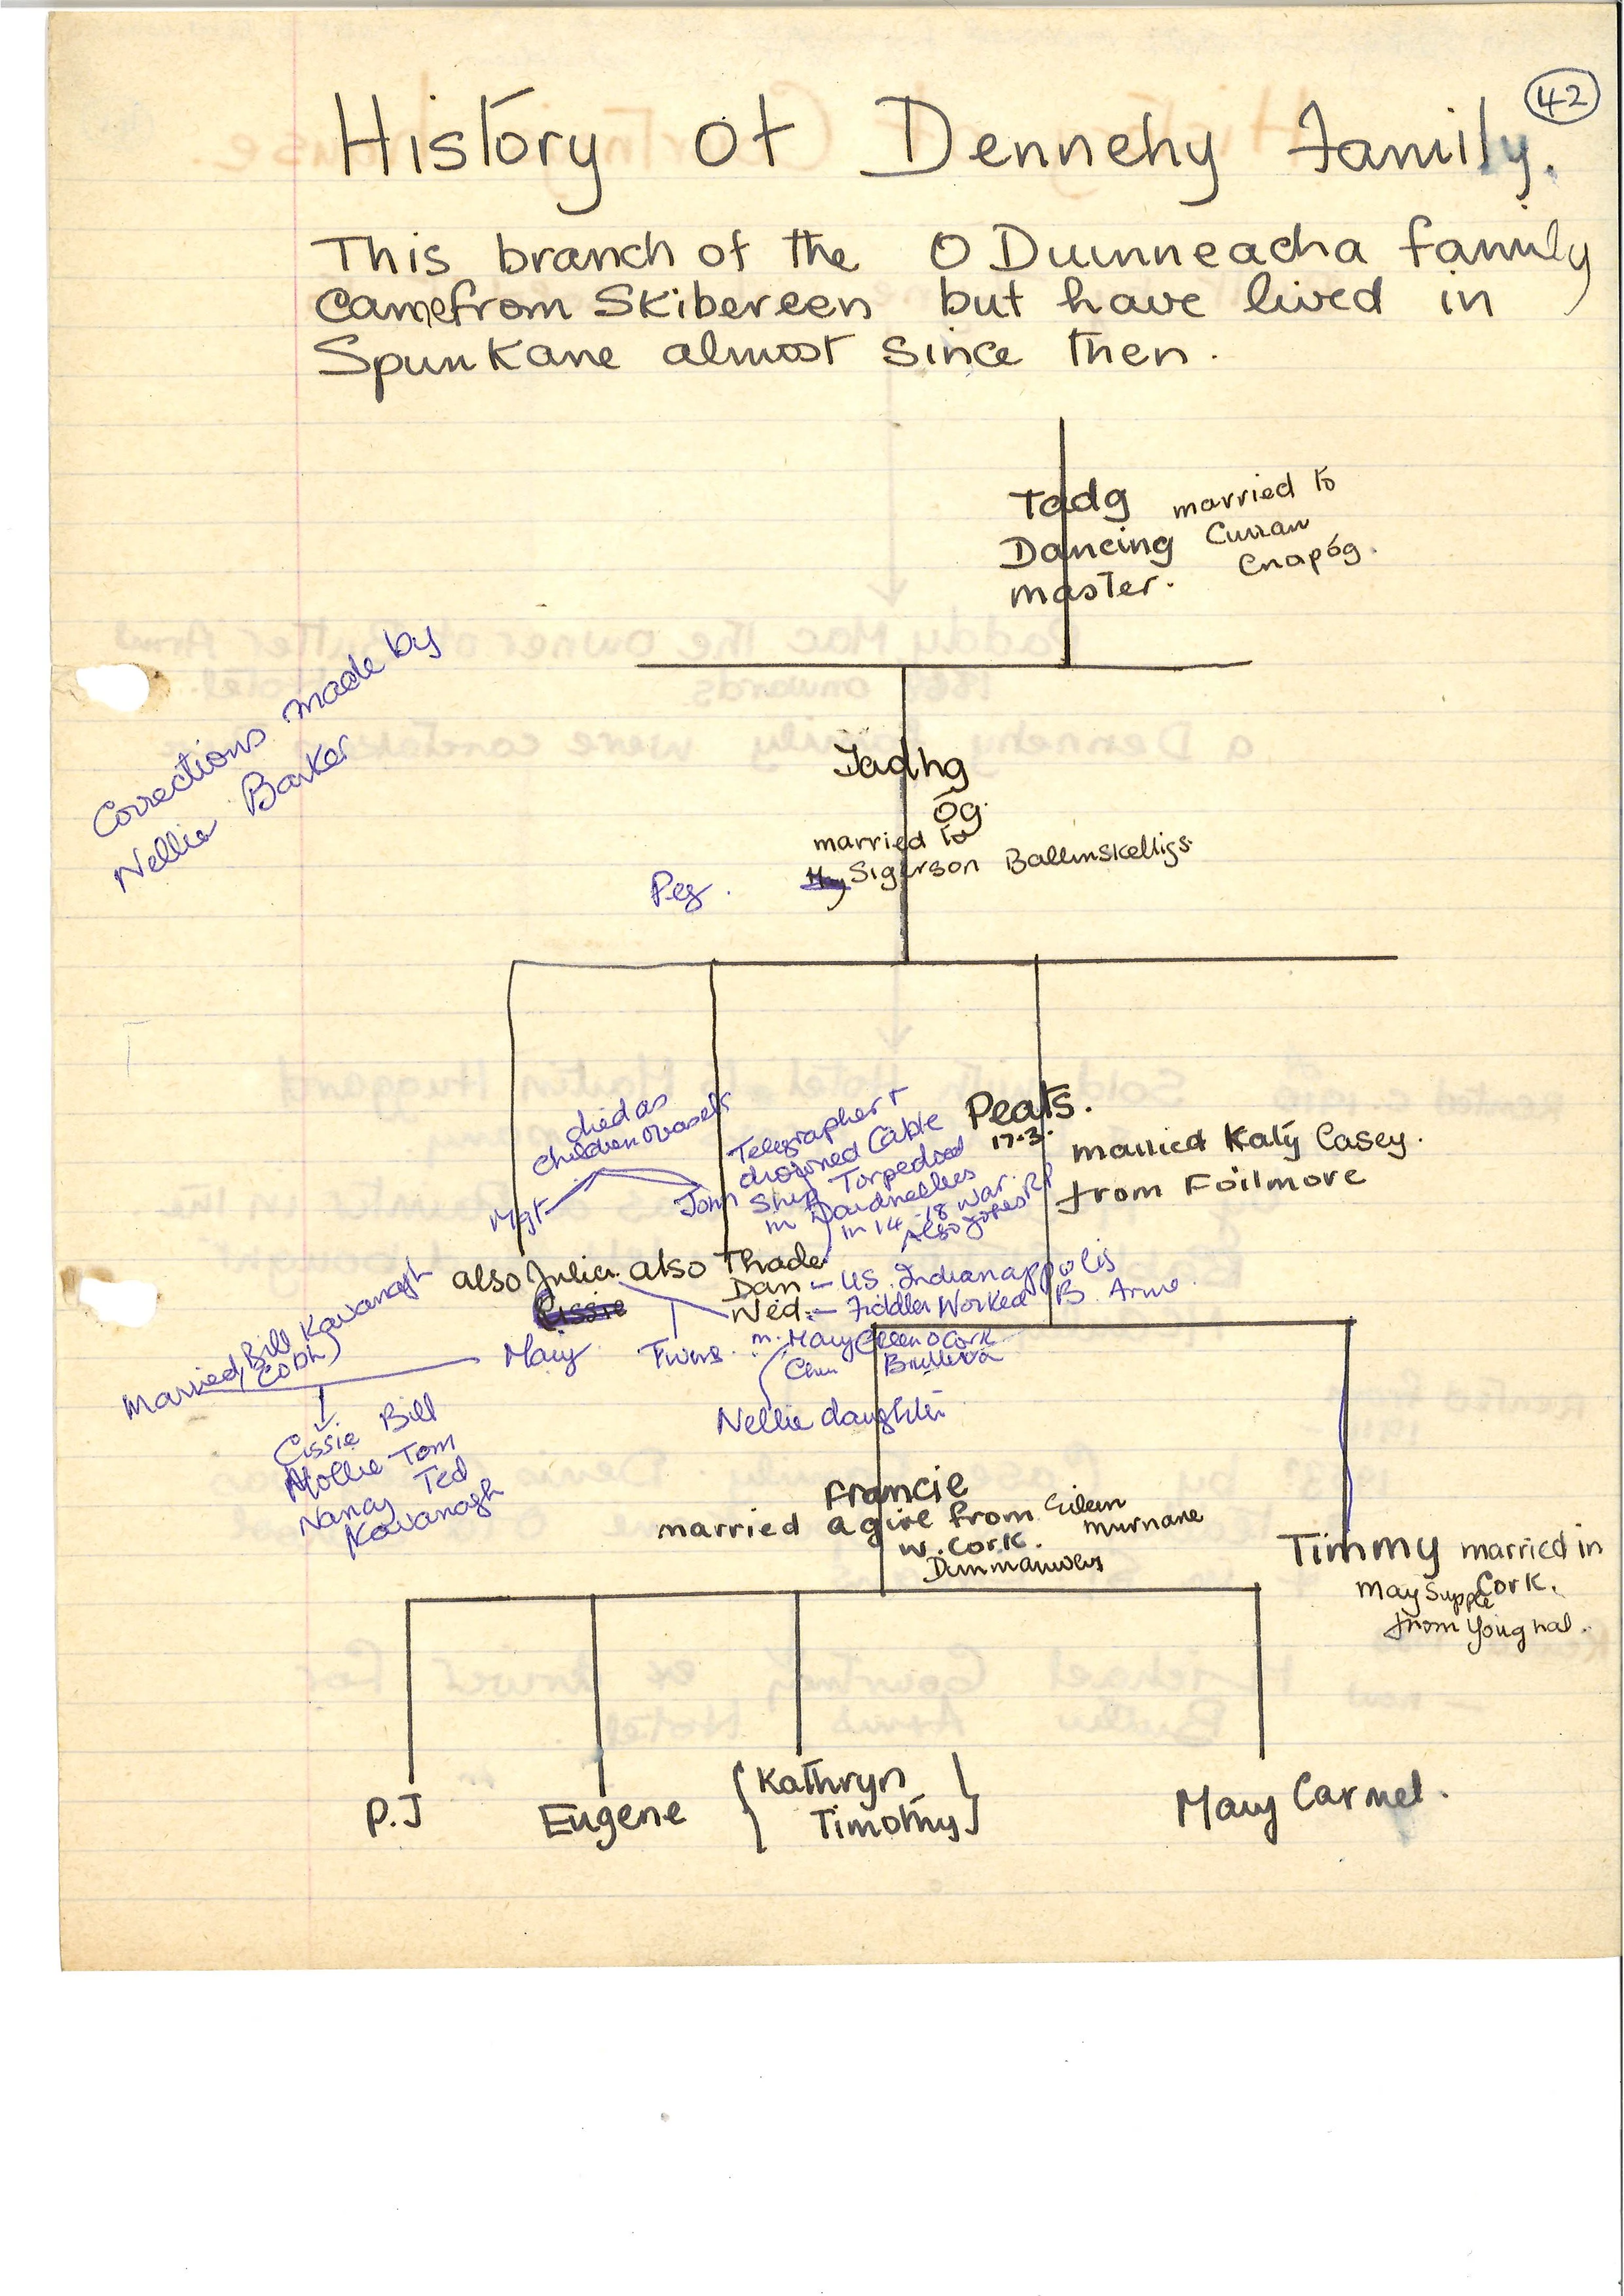 42
History of Dennehy Family.
This branch of the O Duinneacha family
came from Skibereen but have lived in
Spunkane almost since then.
Tadg married to
Dancing Curran
master. Cnapóg.
Corrections made by
Nellie Barker
Tadhg
Óg.
married to
Sigerson Ballinskelligs.
Peg.
died as
children
Mgt
John
Telegrapher +
drowned Cable
Ship Torpedoed
in Dardnelles
in 14-18 war. RIP
Also
Peats.
17.3.
married Katy Casey.
from Foilmore
also Julia. also Thade
Cissie
Dan - US. Indianappolis
Ned:- Fiddler Worked B. Arms.
Mary Twins. m. Mary
Nellie daughter
Married Bill Kavanagh
(Cobh)
Cissie Bill
Mollie Tom
Nancy Ted
Kavanagh
Francie
married a girl from Eileen
Murnane
W. Cork.
Timmy married in
Cork.
May Supple
from Youghal.
P.J
Eugene
{Kathryn
Timothy}
Mary Carmel.